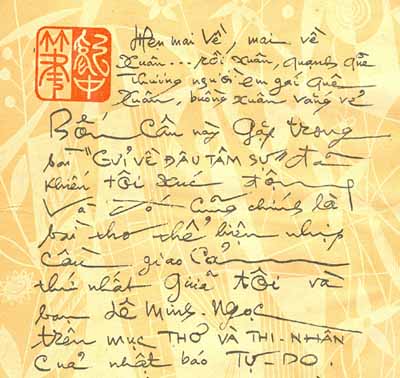 Hẹn mai về, mai về
Xuân... rồi xuân, quạnh quẽ
Thương người em gái quê
Xuân, buồng xuân vắng vẻ
Bốn câu này gặp trong
bài "GỬI VỀ ĐÂU TÂM SỰ" đã
khiến tôi xúc động
Và đó cũng chính là
bài thơ thể hiện nhịp
cầu giao cảm
thứ nhất giữa tôi và
bạn Lê Minh-Ngọc
trên mục THƠ VÀ THI-NHÂN
của nhật báo TỰ-DO.